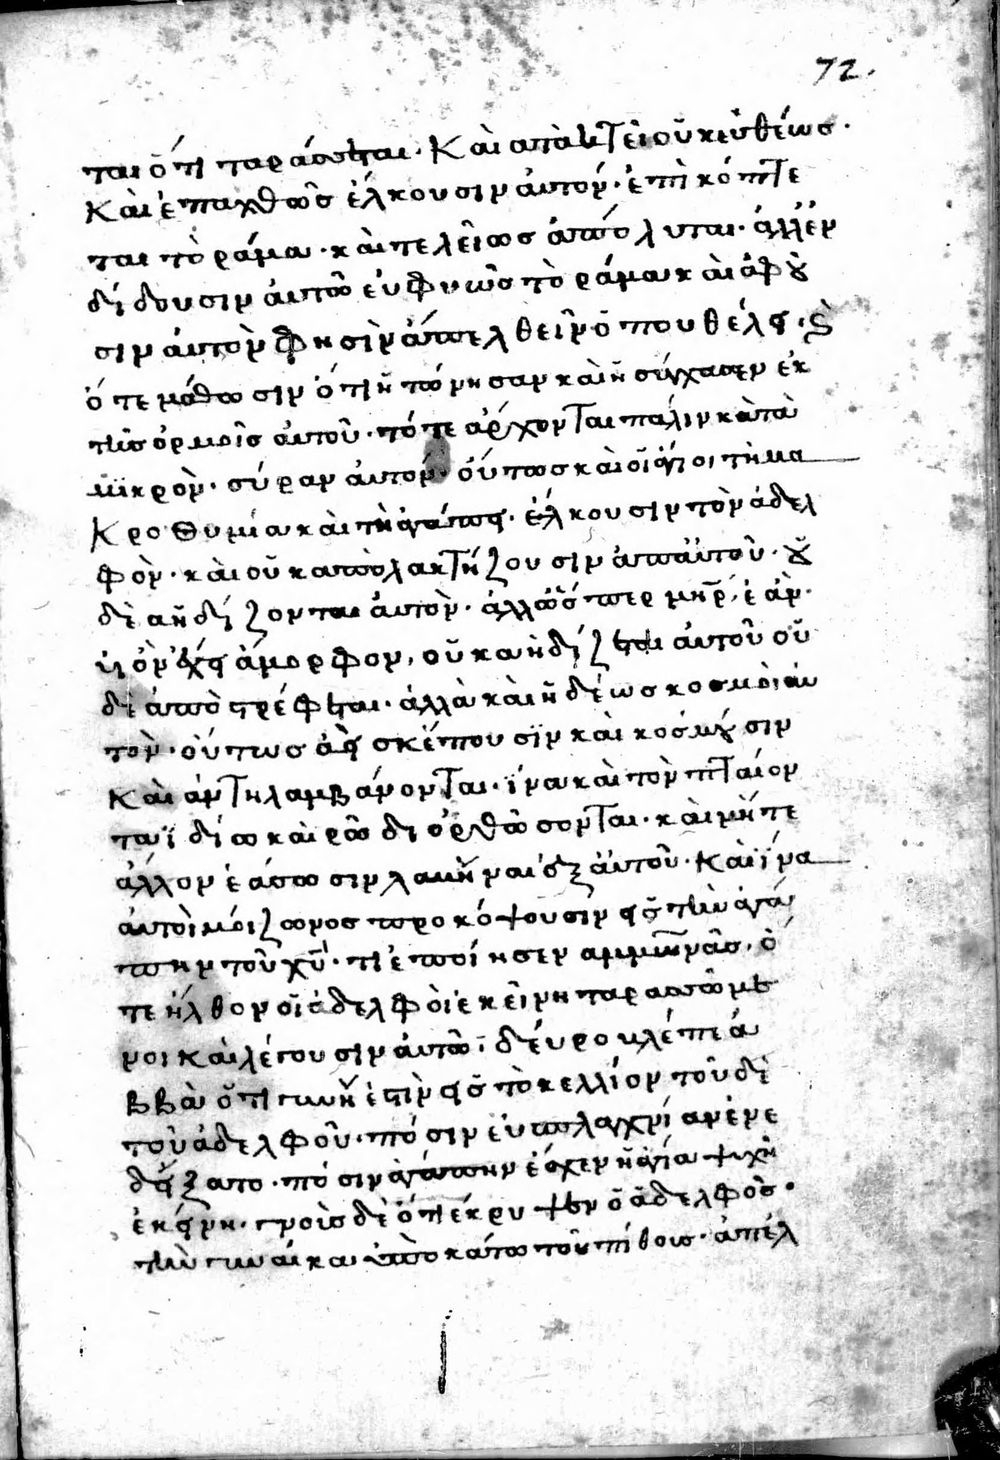 72.
ται ὅτι ταράσσεται. Καὶ ἀπαντεῖ οὐκ εὐθέως.
Καὶ ἐπαχθῶς ἕλκουσιν αὐτόν. ἐπικόπτε
ται τὸ ράμα. καὶ τελείως ἀπόλυται. ἀλλ' ἐν
δίδουσιν αὐτῶ εὐφυῶς τὸ ράμα καὶ ἀφοῦ
σιν αὐτὸν φησὶν ἀπελθεῖν ὅπου θέλει. καὶ
ὅτε μάθωσιν ὅτι ἠτόνησαν καὶ ἡσύχασεν ἐκ
τῆς ὁρμῆς αὐτοῦ. τότε ἄρχονται πάλιν κατὰ
μικρὸν. σύραν αὐτόν. οὕτως καὶ οἱ ἅγιοι τῆ μα
κροθυμία καὶ τῆ ἀγάπη. ἕλκουσιν τὸν ἀδελ
φὸν. καὶ οὐκ ἀπολακτίζουσιν ἀπ' αὐτοῦ. οὐ
δὲ ἀηδίζονται αὐτὸν. ἀλλ' ὥσπερ μηρ, ἐὰν
υἱὸν ἔχει ἄμορφον, οὐκ ἀηδίζεται αὐτοῦ οὐ
δὲ ἀποστρέφεται. ἀλλὰ καὶ ἡδέως κοσμοῖ αυ
τὸν. οὕτως ἀεὶ σκέπουσιν καὶ κοσμοῦσιν
καὶ ἀντηλαμβάνονται. ἵνα καὶ τὸν πταίον
τα ἰδίω καιρῶ διορθώσονται. καὶ μήτε
ἄλλον ἐάσωσιν λαβῆναι ἐξ αὐτοῦ. Καὶ ἵνα
αὐτοὶ μείζωνος προκόψουσιν εἰς τὴν ἀγά
πην τοῦ χυ. τί ἐποίησεν ἀμμωνᾶς. ὅ
τε ἦλθον οἱ ἀδελφοὶ ἐκεῖνη ταρασσόμε
νοι καὶ λέγουσιν αὐτῶ. δεῦρο βλέπε ἀ
ββὰ ὅτι γυνὴ ἐστὶν εἰς τὸ κελλίον τοῦδε
τοῦ ἀδελφοῦ. πόσιν εὐσπλαγχνίαν ἐνε
δείξατο. πόσιν ἀγάπην ἔσχεν ἡ ἁγία ψυχὴ
ἐκείνη. γνοὺς δὲ ὅτι ἔκρυψεν ὁ ἀδελφὸς.
τὴν γυναίκα ὑποκάτω τοῦ πίθους. ἀπέλ